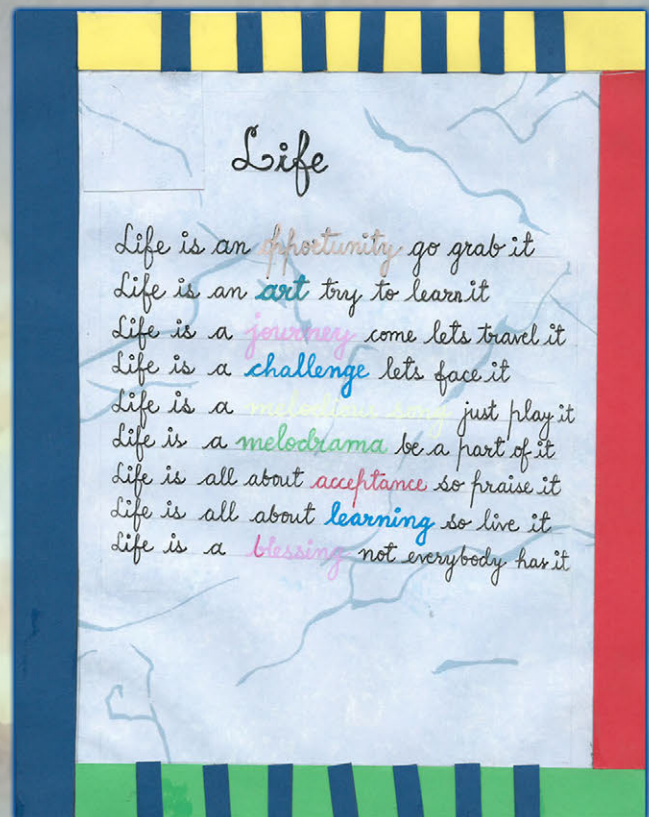 Life
Life is an opportunity go grab it
Life is an art try to learn it
Life is a journey come lets travel it
Life is a challenge lets face it
Life is a melodious song just play it
Life is a melodrama be a part of it
Life is all about acceptance so praise it
Life is all about learning so live it
Life is a blessing not everybody has it